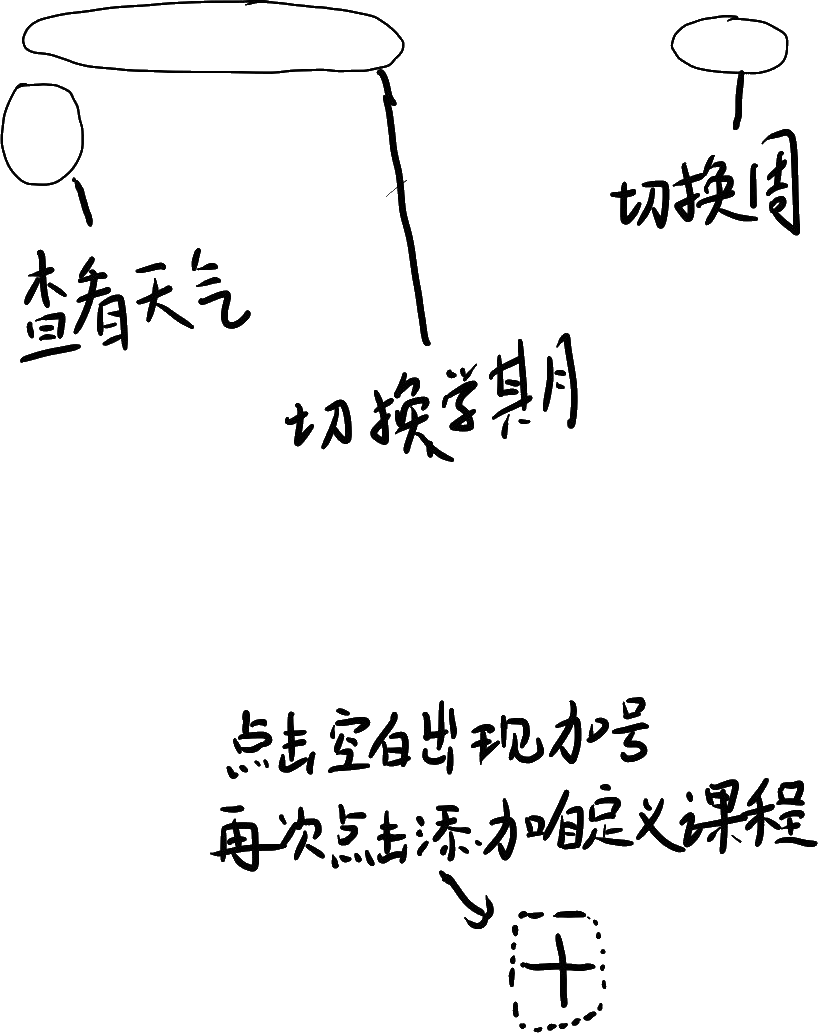 切换周
查看天气
切换学期
点击空白出现加号
再次点击添加自定义课程